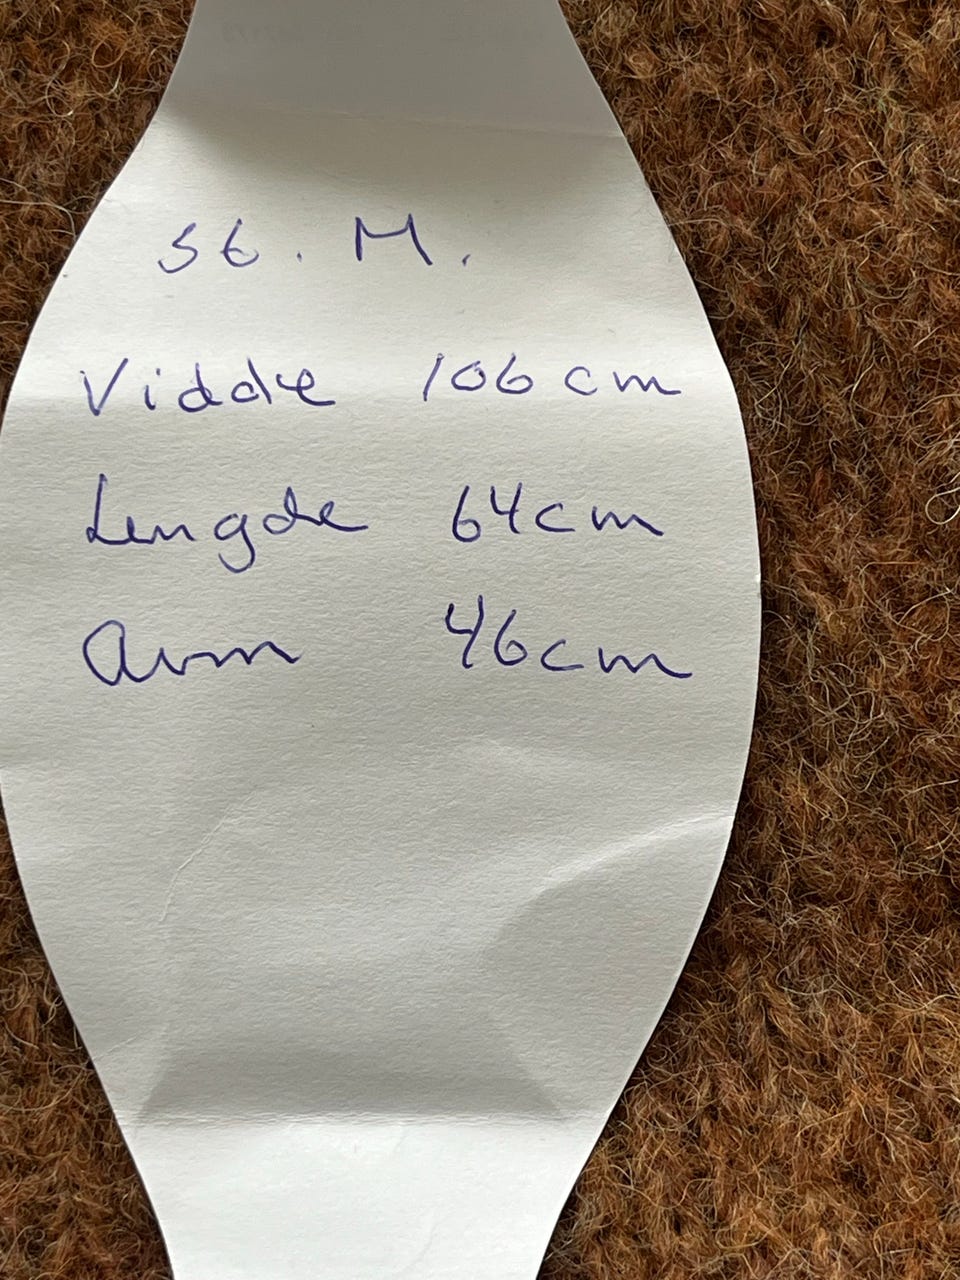 St. M.
Vidde 106 cm
Lengde 64 cm
Arm 46 cm